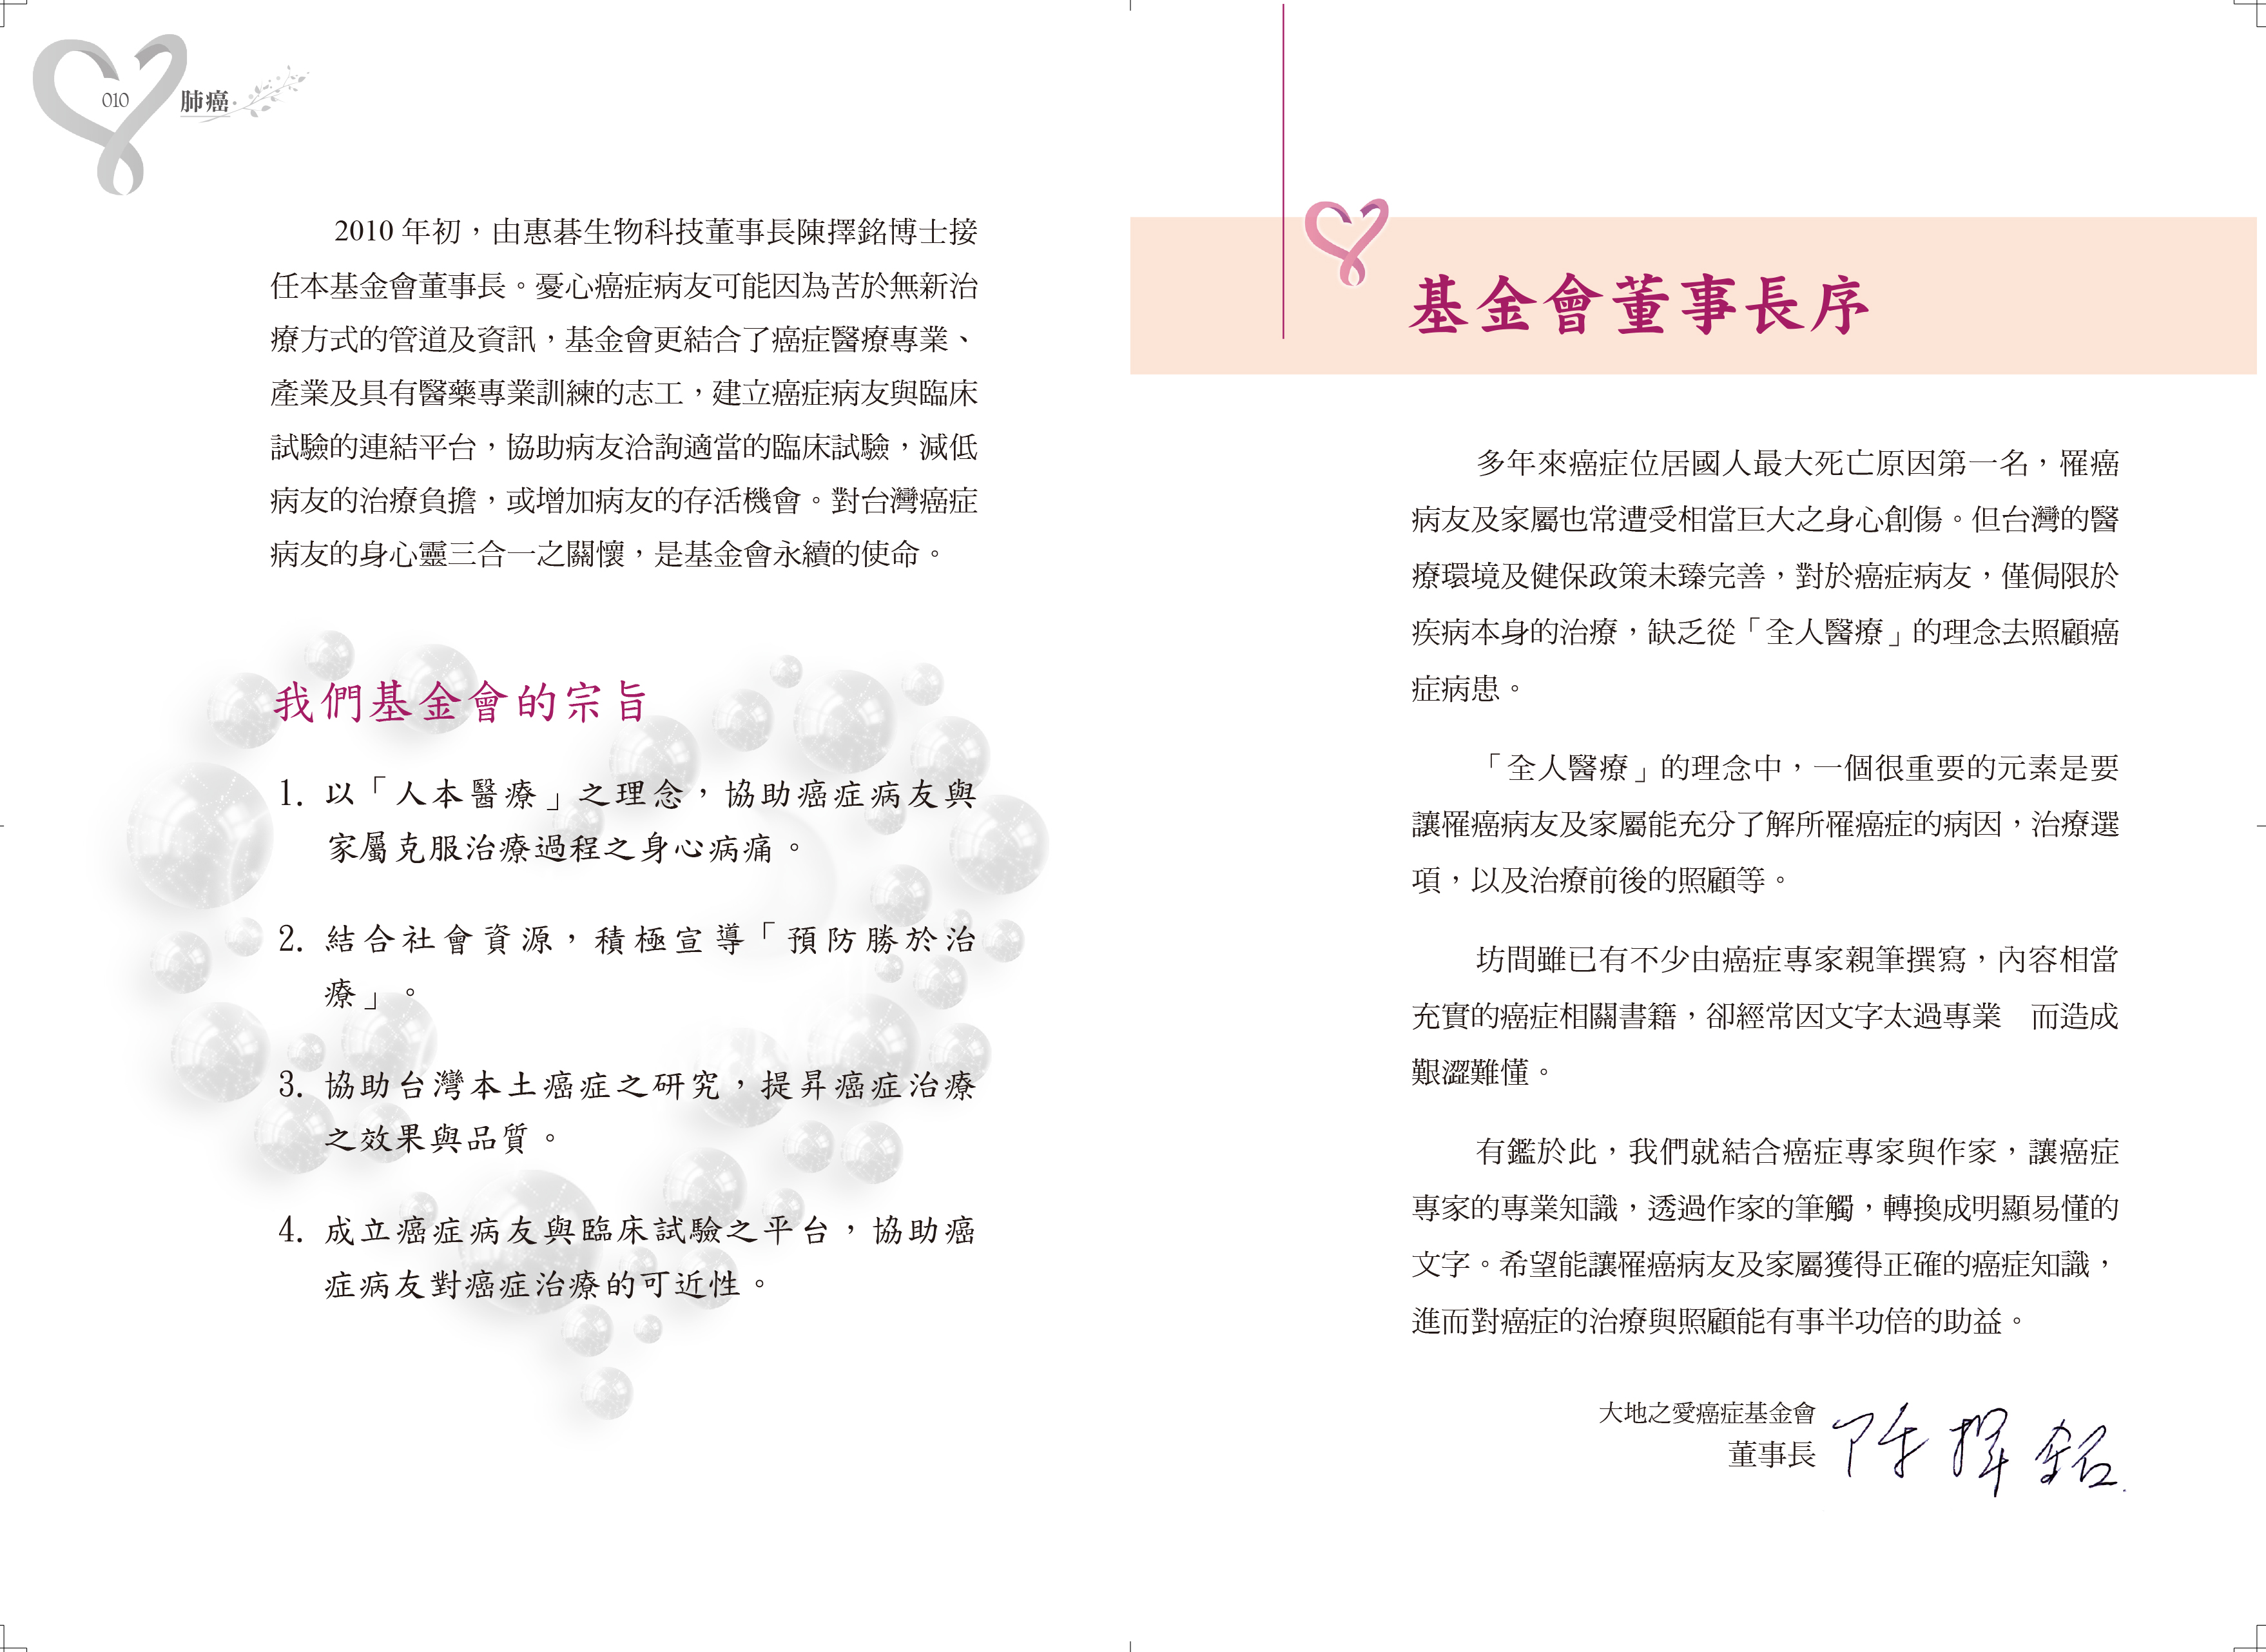 010
肺癌
2010 年初，由惠碁生物科技董事長陳擇銘博士接
任本基金會董事長。憂心癌症病友可能因為苦於無新治
療方式的管道及資訊，基金會更結合了癌症醫療專業、
產業及具有醫藥專業訓練的志工，建立癌症病友與臨床
試驗的連結平台，協助病友洽詢適當的臨床試驗，減低
病友的治療負擔，或增加病友的存活機會。對台灣癌症
病友的身心靈三合一之關懷，是基金會永續的使命。
我們基金會的宗旨
1. 以「人本醫療」之理念，協助癌症病友與
家屬克服治療過程之身心病痛。
2. 結合社會資源，積極宣導「預防勝於治
療」。
3. 協助台灣本土癌症之研究，提昇癌症治療
之效果與品質。
4. 成立癌症病友與臨床試驗之平台，協助癌
症病友對癌症治療的可近性。
基金會董事長序
多年來癌症位居國人最大死亡原因第一名，罹癌
病友及家屬也常遭受相當巨大之身心創傷。但台灣的醫
療環境及健保政策未臻完善，對於癌症病友，僅侷限於
疾病本身的治療，缺乏從「全人醫療」的理念去照顧癌
症病患。
「全人醫療」的理念中，一個很重要的元素是要
讓罹癌病友及家屬能充分了解所罹癌症的病因，治療選
項，以及治療前後的照顧等。
坊間雖已有不少由癌症專家親筆撰寫，內容相當
充實的癌症相關書籍，卻經常因文字太過專業　而造成
艱澀難懂。
有鑑於此，我們就結合癌症專家與作家，讓癌症
專家的專業知識，透過作家的筆觸，轉換成明顯易懂的
文字。希望能讓罹癌病友及家屬獲得正確的癌症知識，
進而對癌症的治療與照顧能有事半功倍的助益。
大地之愛癌症基金會
董事長 陳擇銘